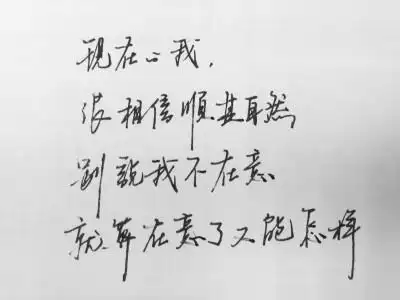 现在的我，
很相信順其自然
别說我不在意
就算在意了又能怎样